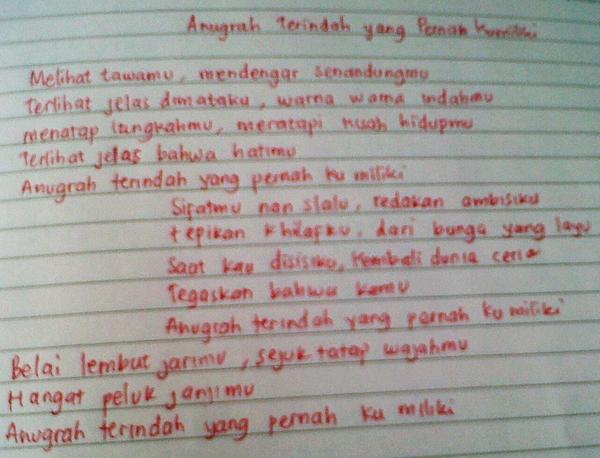 Anugrah terindah yang Pernah Kumiliki
Melihat tawamu, mendengar senandungmu
Terlihat jelas dimataku, warna warna indahmu
menatap langkahmu, meratapi kisah hidupmu
Terlihat jelas bahwa hatimu
Anugrah terindah yang pernah ku miliki
Sifatmu nan slalu, redakan ambisiku
tepikan khilafku, dari bunga yang layu
Saat kau disisiku, Kembali dunia ceria
Tegaskan bahwa kamu
Anugrah terindah yang pernah ku miliki
Belai lembut jarimu, sejuk tatap wajahmu
Hangat peluk janjimu
Anugrah terindah yang pernah ku miliki